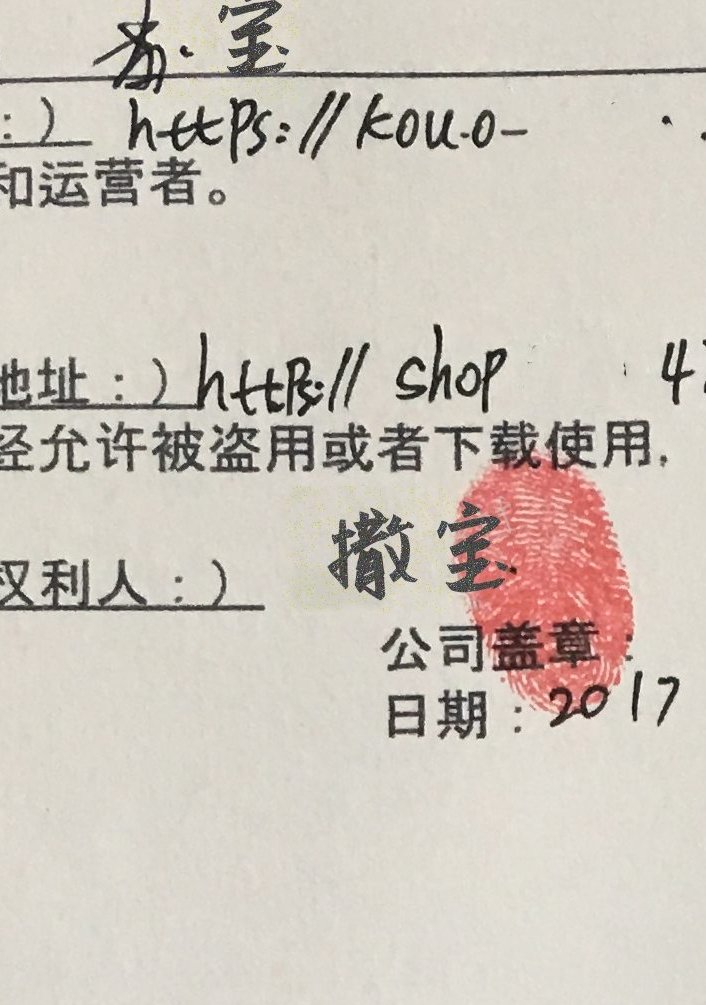 宝
:) https://kou.o-
和运营者。
地址:) https:// shop 47
经允许被盗用或者下载使用.
撒宝
权利人:)
公司盖章:
日期:2017